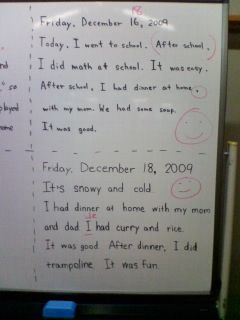 18
Friday, December 16, 2009
Today, I went to school. (After school,)
I did math at school. It was easy.
After school, I had dinner at home,
with my mom. We had some soup.
It was good.
Friday, December 18, 2009
It's snowy and cold.
I had dinner at home with my mom
and dad I had curry and rice.
It was good After dinner, I did
trampoline. It was fun.
so